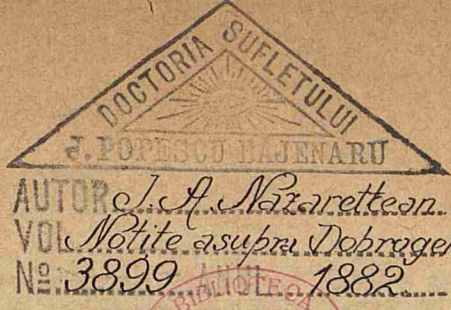 DOCTORIA SUFLETULUI
J. POPESCU BAJENARU
AUTOR J. A. Nazarettean
VOL Notite asupra Dobrogei
Nº 3899 ANUL 1882
BIBLIOTECA